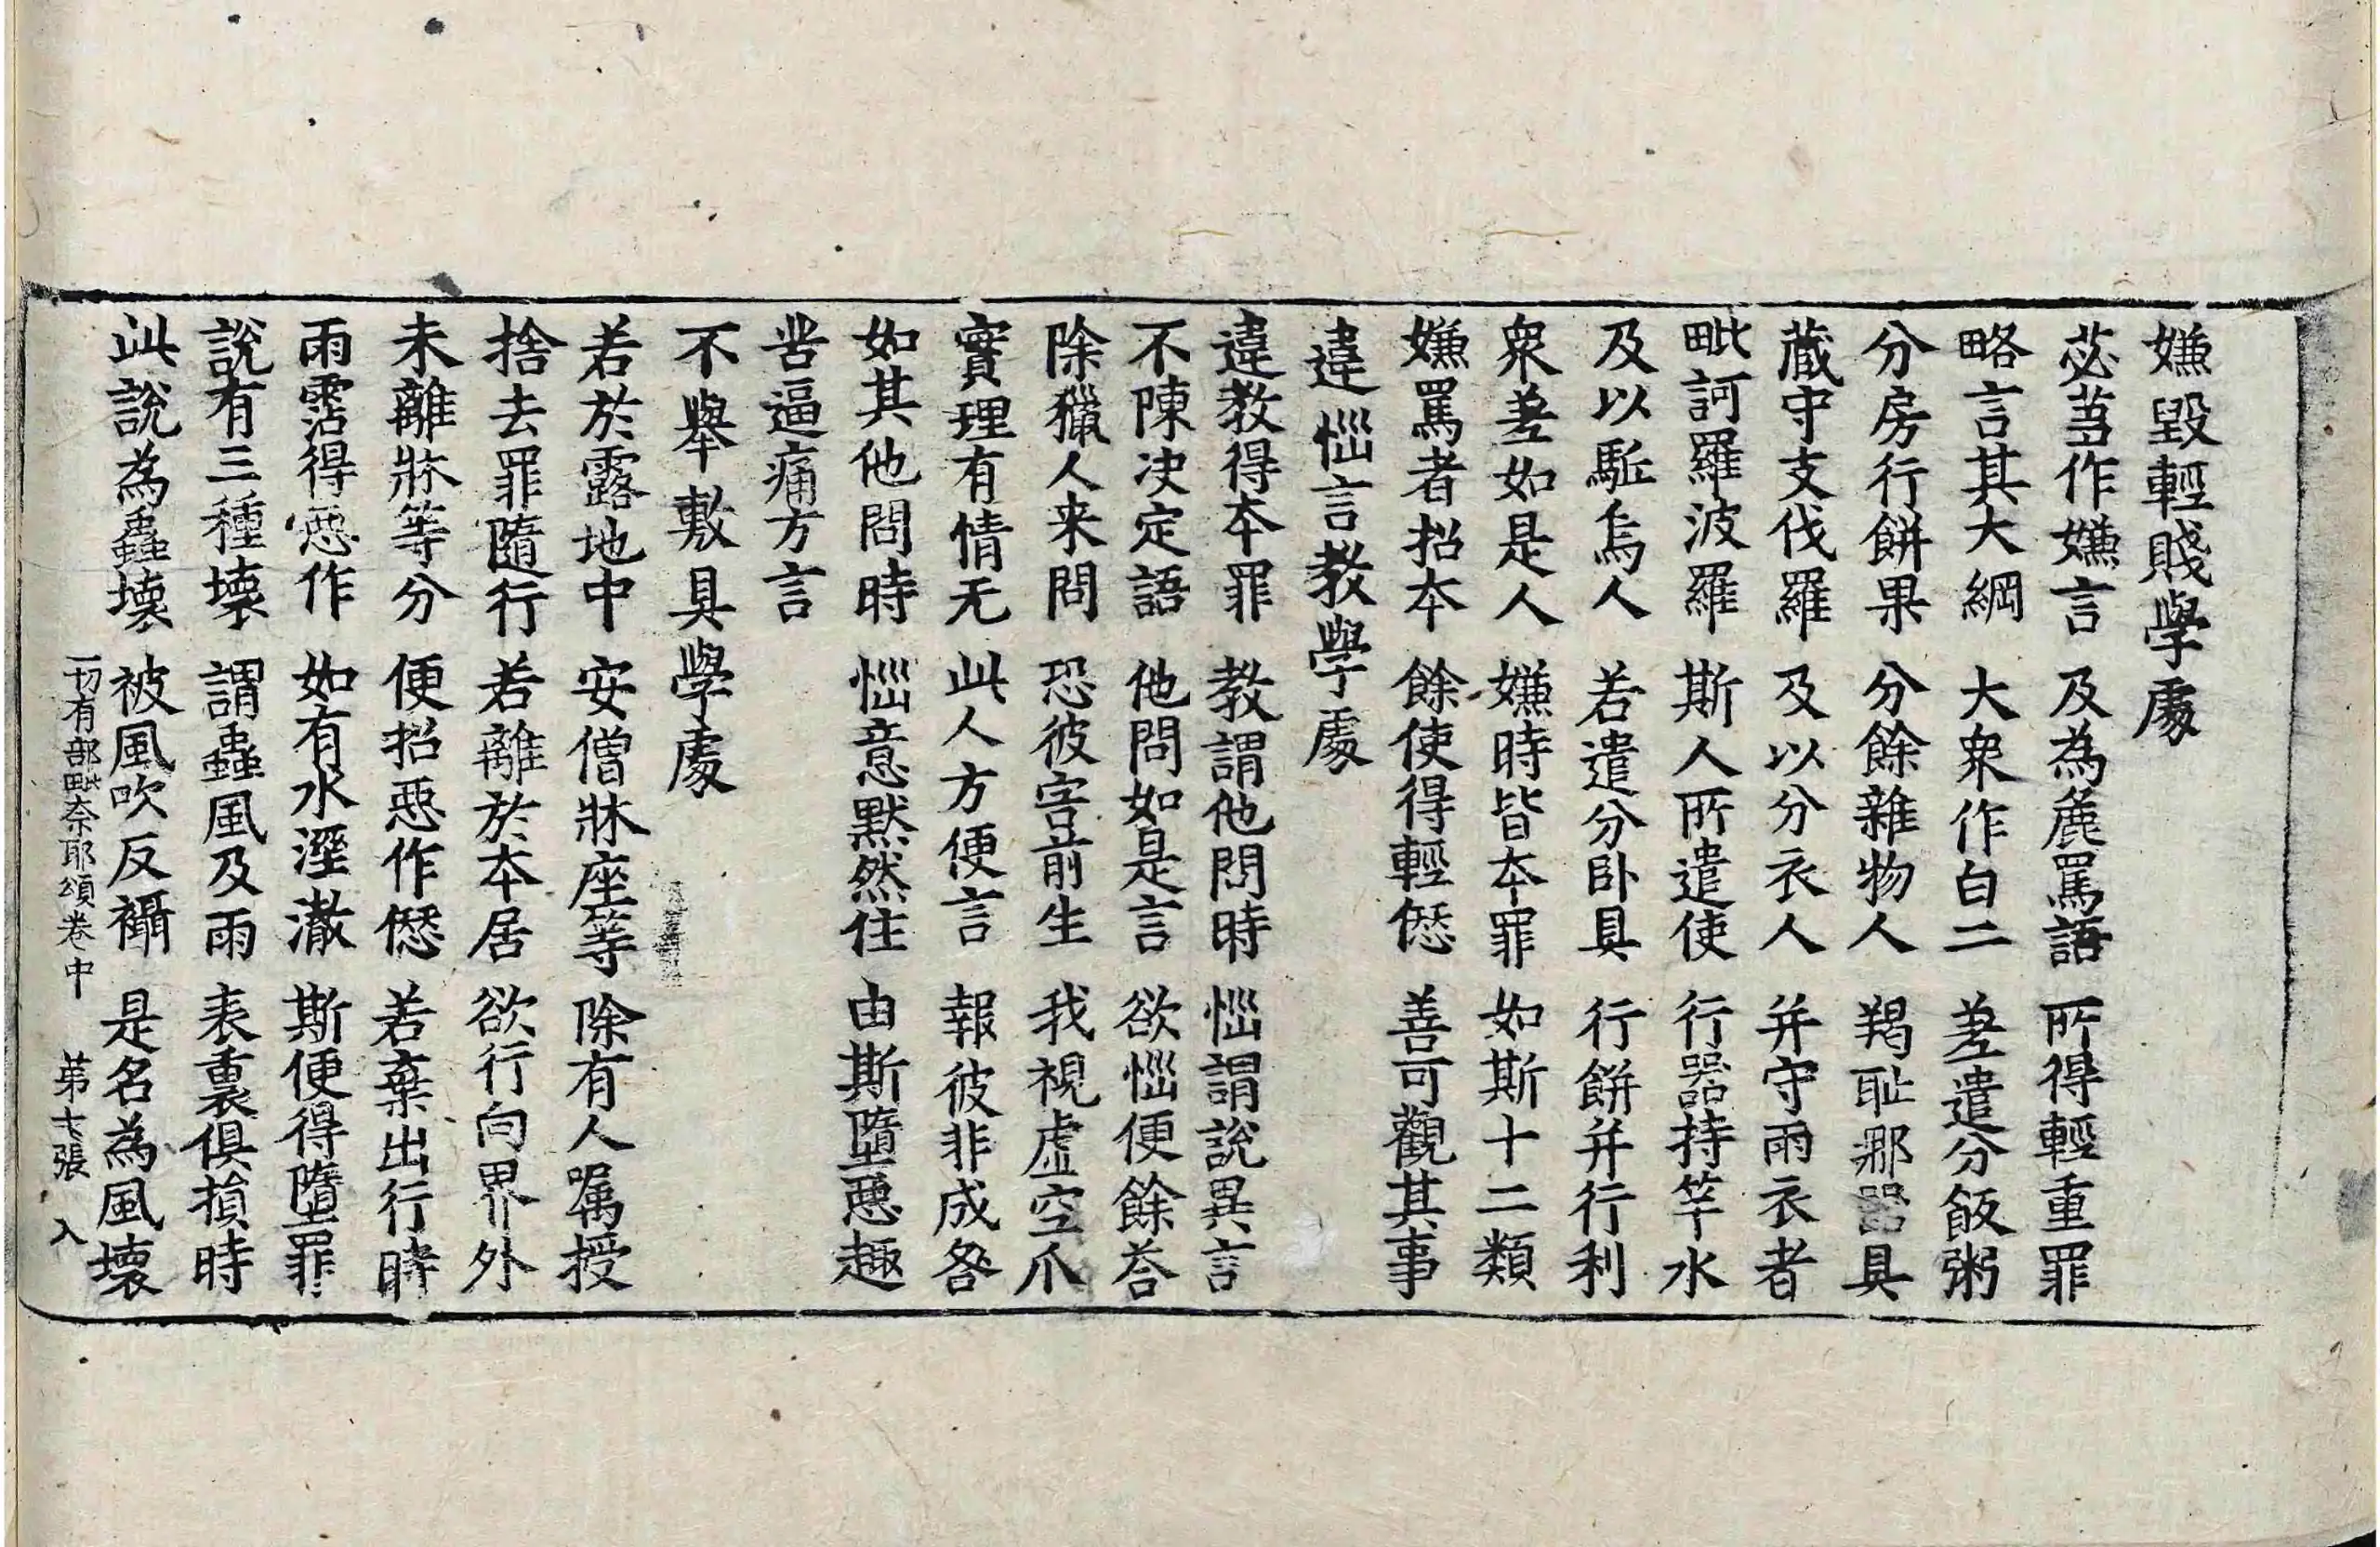 嫌毀輕賤學處
苾蒭作嫌言 及為麁罵語 所得輕重罪
略言其大綱 大衆作白二 差遣分飯粥
分房行餅果 分餘雜物人 羯耻那器具
藏守支伐羅 及以分衣人 并守雨衣者
毗訶羅波羅 斯人所遣使 行器持竿水
及以駈烏人 若遣分卧具 行餅并行利
衆差如是人 嫌時皆本罪 如斯十二類
嫌罵者招本 餘使得輕𠎝 善可觀其事
違惱言教學處
違教得本罪 教謂他問時 惱謂說異言
不陳决定語 他問如是言 欲惱便餘荅
除獵人来問 恐彼害前生 我視虛空爪
實理有情无 此人方便言 報彼非成咎
如其他問時 惱意默然住 由斯墮惡趣
苦逼痛方言
不舉敷具學處
若於露地中 安僧牀座等 除有人囑授
捨去罪隨行 若離於本居 欲行向界外
未離牀等分 便招惡作𠎝 若棄出行時
雨霑得惡作 如有水溼澈 斯便得墮罪
說有三種壞 謂蟲風及雨 表裏俱損時
此說為蟲壞 被風吹反襵 是名為風壞
一切有部毗奈耶頌卷中 第七張 入